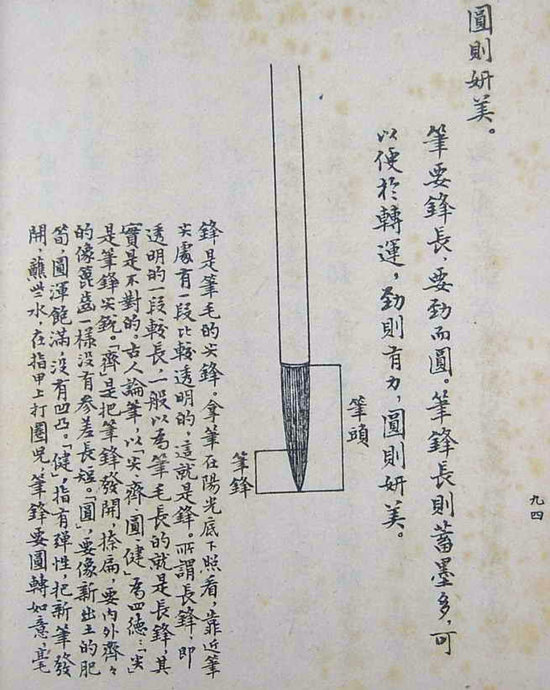 圓則妍美。
筆要鋒長、要勁而圓。筆鋒長則蓄墨多，可
以便於轉運，勁則有力，圓則妍美。
筆頭
筆鋒
鋒是筆毛的尖鋒。拿筆在陽光底下照看，靠近筆
尖處有一段比較透明的，這就是鋒。所謂長鋒，即
透明的一段較長，一般以為筆毛長的就是長鋒，其
實是不對的。古人論筆，以「尖、齊、圓、健」為四德：「尖」
是筆鋒尖銳。「齊」是把筆鋒發開，捺扁，要內外齊々
的像篦齒一樣沒有參差長短。「圓」要像新出土的肥
筍，圓渾飽滿，沒有凹凸。「健」指有彈性，把新筆發
開，蘸些水，在指甲上打圈兒，筆鋒要圓轉如意，毫
九四